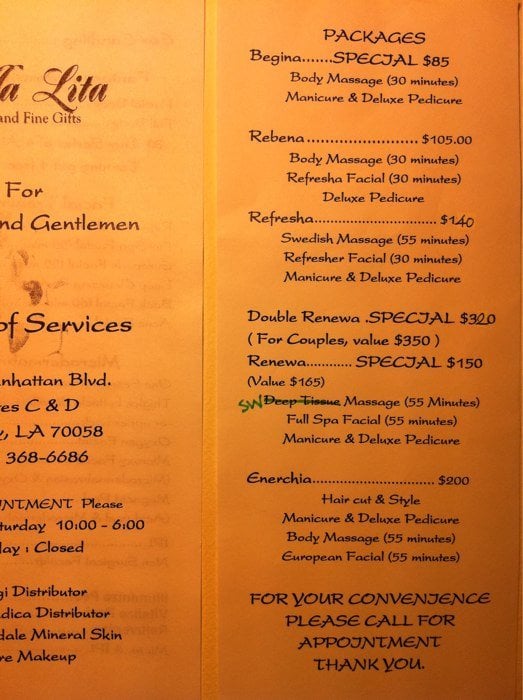 Lita
and Fine Gifts
For
nd Gentlemen
of Services
nhattan Blvd.
es C & D
, LA 70058
368-6686
NTMENT Please
turday 10:00 - 6:00
day : Closed
gi Distributor
dica Distributor
dale Mineral Skin
re Makeup
PACKAGES
Begina.......SPECIAL $85
Body Massage (30 minutes)
Manicure & Deluxe Pedicure
Rebena...................... $105.00
Body Massage (30 minutes)
Refresha Facial (30 minutes)
Deluxe Pedicure
Refresha........................ $140
Swedish Massage (55 minutes)
Refresher Facial (30 minutes)
Manicure & Deluxe Pedicure
Double Renewa .SPECIAL $320
( For Couples, value $350 )
Renewa............ SPECIAL $150
(Value $165)
SW Deep Tissue Massage (55 Minutes)
Full Spa Facial (55 minutes)
Manicure & Deluxe Pedicure
Enerchia............................... $200
Hair cut & Style
Manicure & Deluxe Pedicure
Body Massage (55 minutes)
European Facial (55 minutes)
FOR YOUR CONVENIENCE
PLEASE CALL FOR
APPOINTMENT
THANK YOU.